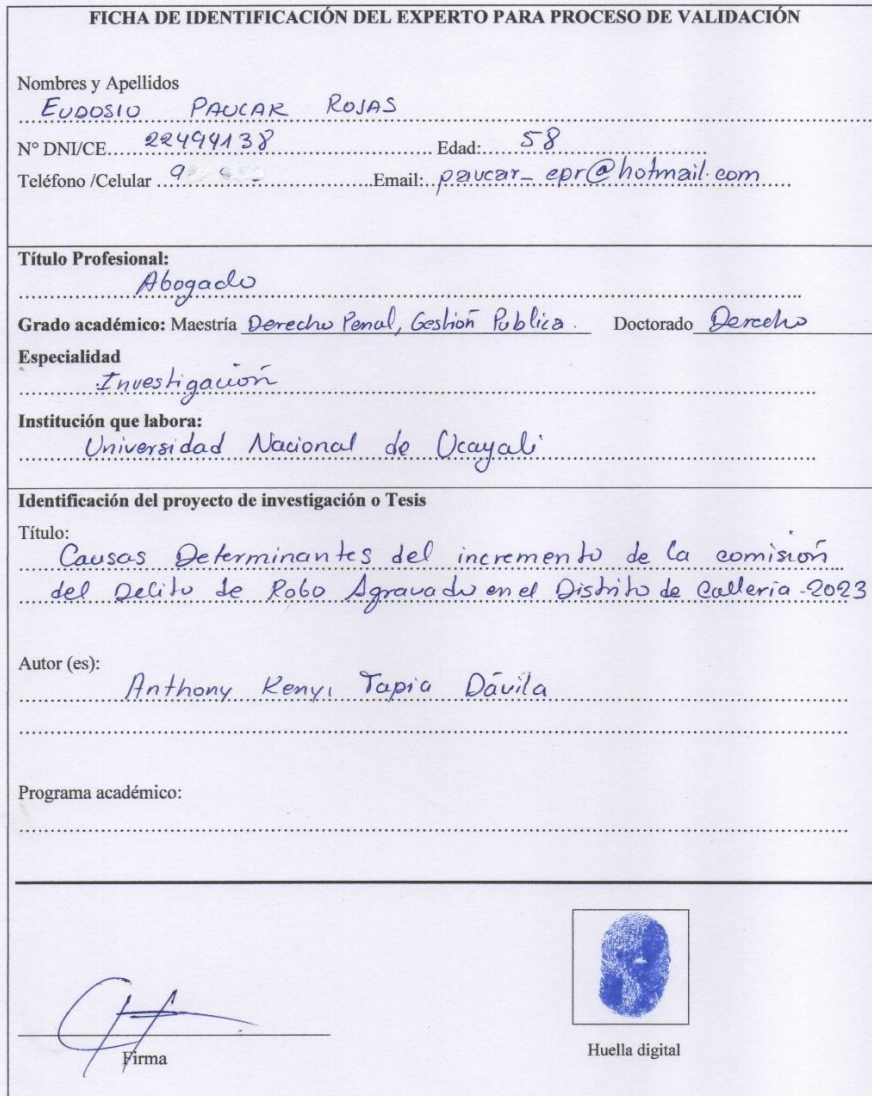 FICHA DE IDENTIFICACIÓN DEL EXPERTO PARA PROCESO DE VALIDACIÓN
Nombres y Apellidos
EUDOSIO PAUCAR ROJAS
N° DNI/CE 22494138 Edad: 58
Teléfono /Celular 9 Email: paucar_epr@hotmail.com
Título Profesional:
Abogado
Grado académico: Maestría Derecho Penal, Gestión Publica. Doctorado Derecho
Especialidad
Investigación
Institución que labora:
Universidad Nacional de Ucayali
Identificación del proyecto de investigación o Tesis
Título:
Causas Determinantes del incremento de la comisión
del Delito de Robo Agravado en el Distrito de Calleria -2023
Autor (es):
Anthony Kenyi Tapia Dávila
Programa académico:
Firma
Huella digital